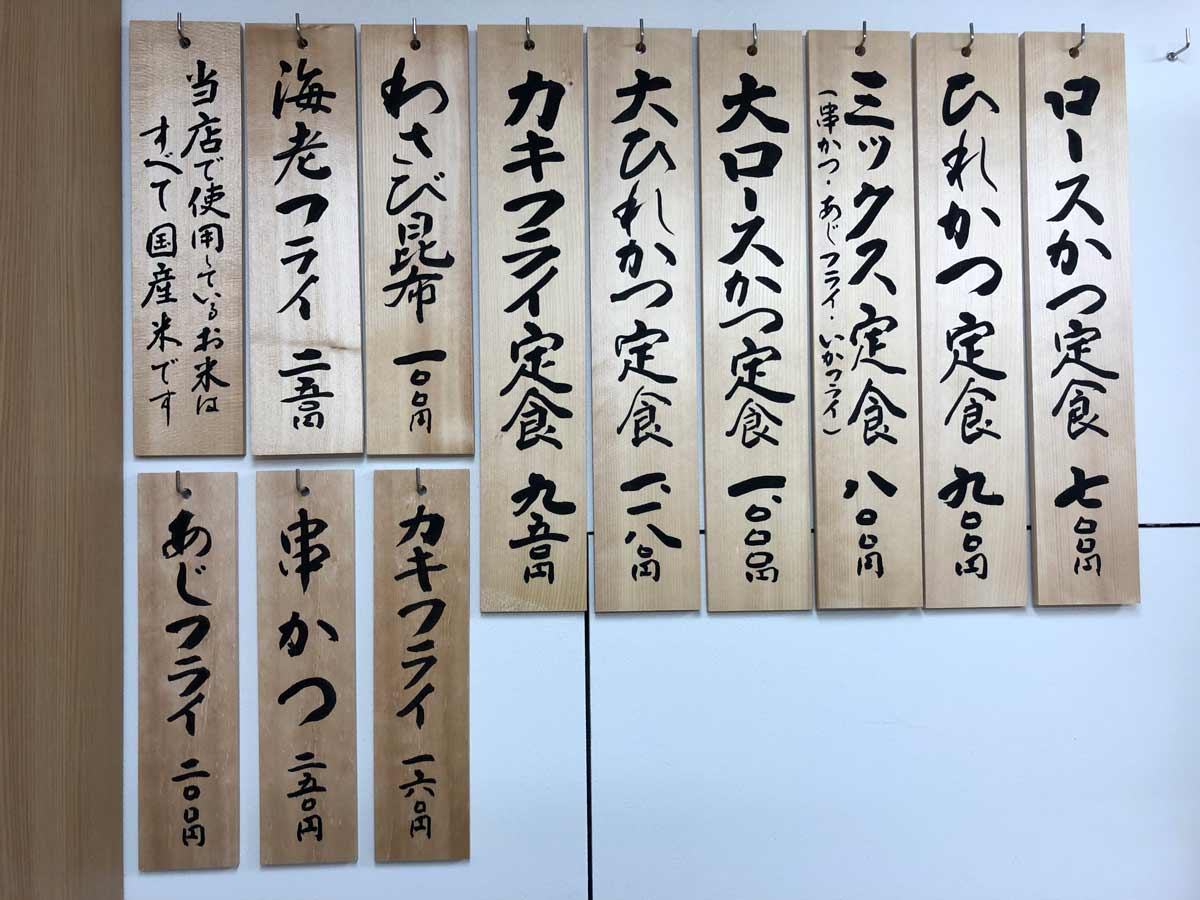 ロースかつ定食 七〇〇円
ひれかつ定食 九〇〇円
三ックス定食 八〇〇円
(串かつ・あじフライ・いかフライ)
大ロースかつ定食 一、〇〇〇円
大ひれかつ定食 一、一八〇円
カキフライ定食 九五〇円
わさび昆布 一〇〇円
海老フライ 二五〇円
当店で使用しているお米は
すべて国産米です
カキフライ 一六〇円
串かつ 二五〇円
あじフライ 二〇〇円